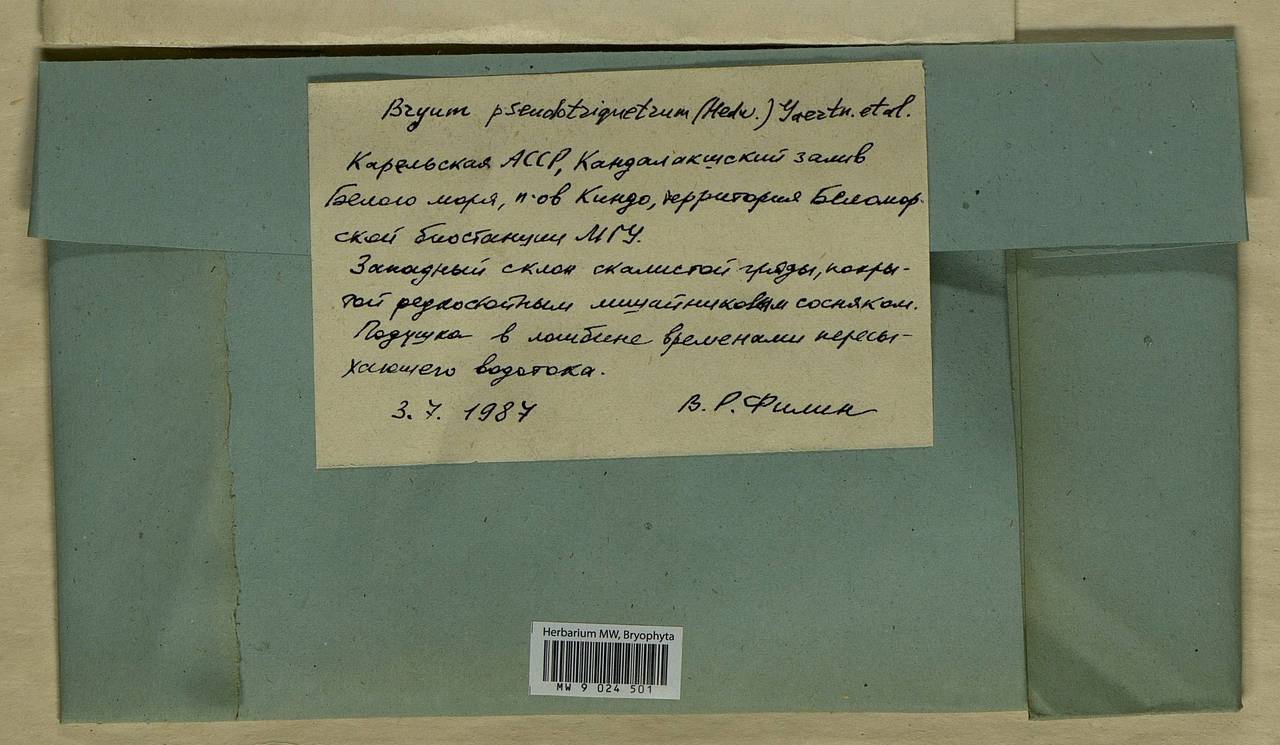 Bryum pseudotriquetrum (Hedw.) Gaertn. et al.
Карельская АССР, Кандалакшский залив
Белого моря, п-ов Киндо, территория Беломор-
ской биостанции МГУ.
Западный склон скалистой гряды, покры-
той редкостойным лишайниковым сосняком.
Подушка в ложбине временами пересы-
хающего водотока.
3.7.1987 В.Р.Филин
Herbarium MW, Bryophyta
MW 9 024 501